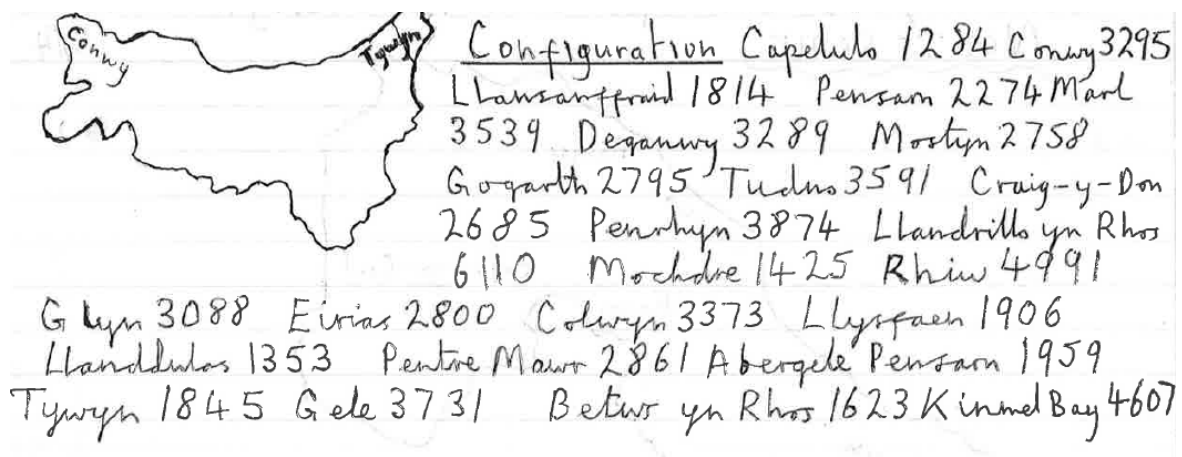 Conwy
Tywyn
Configuration Capelulo 1284 Conwy 3295
Llansanffraid 1814 Pensarn 2274 Marl
3539 Deganwy 3289 Mostyn 2758
Gogarth 2795 Tudno 3591 Craig-y-Don
2685 Penrhyn 3874 Llandrillo yn Rhos
6110 Mochdre 1425 Rhiw 4991
Glyn 3088 Eirias 2800 Colwyn 3373 Llysfaen 1906
Llanddulas 1353 Pentre Mawr 2861 Abergele Pensarn 1959
Tywyn 1845 Gele 3731 Betws yn Rhos 1623 Kinmel Bay 4607